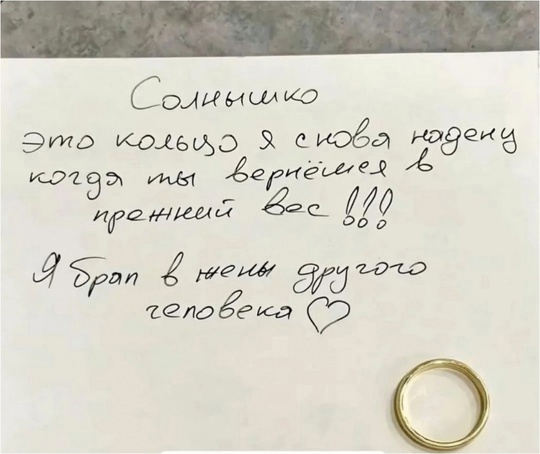 Солнышко
это кольцо я снова надену
когда ты вернёшся в
прежний вес !!!
Я брал в жены другого
человека ♡